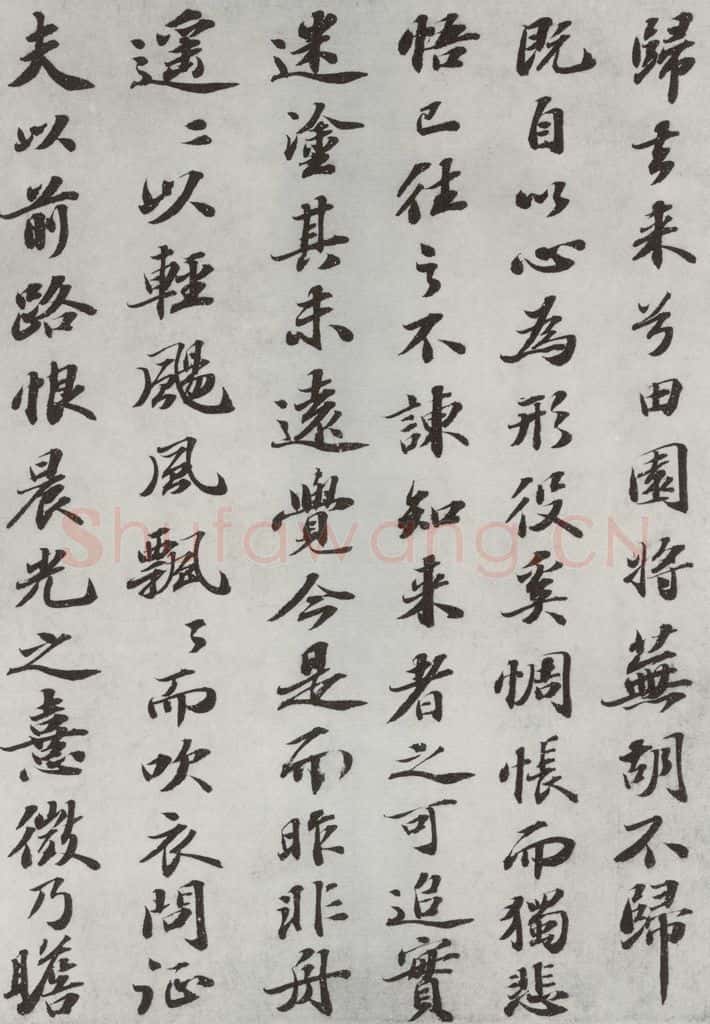 歸去来兮田園將蕪胡不歸
既自以心為形役奚惆悵而獨悲
悟已往之不諫知来者之可追實
迷塗其未遠覺今是而昨非舟
遥〻以輕颺風飄〻而吹衣問征
夫以前路恨晨光之憙微乃瞻
Shufawang.CN